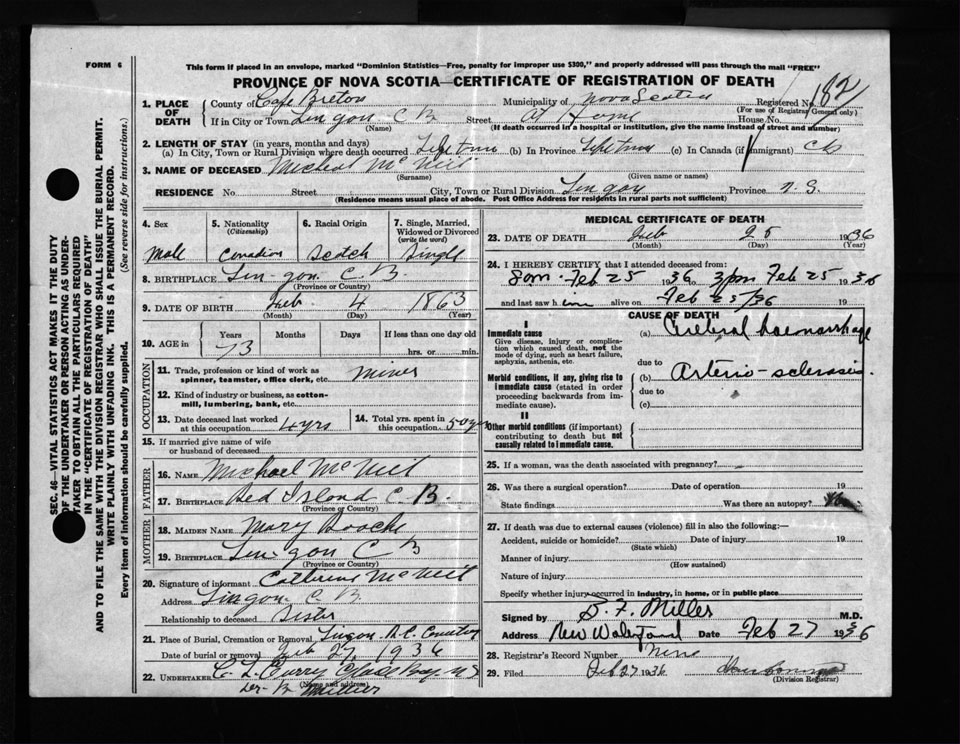 FORM 6
This form if placed in an envelope, marked "Dominion Statistics—Free, penalty for improper use $300," and properly addressed will pass through the mail "FREE"
PROVINCE OF NOVA SCOTIA—CERTIFICATE OF REGISTRATION OF DEATH
1. PLACE OF DEATH
County of Cape Breton Municipality of Nova Scotia Registered No. 182
(For use of Registrar General only)
If in City or Town Lingon C B Street At Home House No.
(Name) (If death occurred in a hospital or institution, give the name instead of street and number)
2. LENGTH OF STAY (in years, months and days)
(a) In City, Town or Rural Division where death occurred Lifetime (b) In Province Lifetime (c) In Canada (if immigrant)
3. NAME OF DECEASED Micheal McNeil
(Surname) (Given name or names)
RESIDENCE No Street City, Town or Rural Division Lingon Province N. S.
(Residence means usual place of abode. Post Office Address for residents in rural parts not sufficient)
4. Sex Male
5. Nationality (Citizenship) Canadian
6. Racial Origin Scotch
7. Single, Married, Widowed or Divorced (write the word) Single
8. BIRTHPLACE Lin-gon C B
(Province or Country)
9. DATE OF BIRTH Feb 4 1863
(Month) (Day) (Year)
10. AGE in Years Months Days If less than one day old
73 hrs. or min.
OCCUPATION
11. Trade, profession or kind of work as spinner, teamster, office clerk, etc. miner
12. Kind of industry or business, as cotton-mill, lumbering, bank, etc.
13. Date deceased last worked at this occupation 4 yrs
14. Total yrs. spent in this occupation 50 yrs
15. If married give name of wife or husband of deceased
FATHER
16. NAME Michael McNeil
17. BIRTHPLACE Red Island C. B.
(Province or Country)
MOTHER
18. MAIDEN NAME Mary Roache
19. BIRTHPLACE Lin-gon C B
(Province or Country)
20. Signature of informant Catherine McNeil
Address Lingon C. B.
Relationship to deceased Sister
21. Place of Burial, Cremation or Removal Lingon R.C. Cemetery
Date of burial or removal Feb 27, 1936
22. UNDERTAKER C. L. Curry Glace Bay NS
(Name and address)
MEDICAL CERTIFICATE OF DEATH
23. DATE OF DEATH Feb 25 1936
(Month) (Day) (Year)
24. I HEREBY CERTIFY that I attended deceased from:
8am. Feb 25 1936 to 3pm Feb 25 1936
and last saw him alive on Feb 25/36 19
CAUSE OF DEATH
I
Immediate cause
Give disease, injury or complication which caused death, not the mode of dying, such as heart failure, asphyxia, asthenia, etc.
(a) Cerebral haemorrhage
due to
Morbid conditions, if any, giving rise to immediate cause (stated in order proceeding backwards from immediate cause).
(b) Arterio-sclerosis.
due to
(c)
II
Other morbid conditions (if important) contributing to death but not causally related to immediate cause.
25. If a woman, was the death associated with pregnancy?
26. Was there a surgical operation? Date of operation 19
State findings Was there an autopsy?
27. If death was due to external causes (violence) fill in also the following:—
Accident, suicide or homicide? Date of injury 19
(State which)
Manner of injury
(How sustained)
Nature of injury
Specify whether injury occurred in industry, in home, or in public place
Signed by D. F. Miller M.D.
Address New Waterford Date Feb 27 1936
28. Registrar's Record Number
29. Filed Feb 27 1936
(Division Registrar)
SEC. 46—VITAL STATISTICS ACT MAKES IT THE DUTY
OF THE UNDERTAKER OR PERSON ACTING AS UNDER-
TAKER TO OBTAIN ALL THE PARTICULARS REQUIRED
IN THE "CERTIFICATE OF REGISTRATION OF DEATH"
AND TO FILE THE SAME WITH THE DIVISION REGISTRAR WHO SHALL ISSUE THE BURIAL PERMIT.
WRITE PLAINLY WITH UNFADING INK. THIS IS A PERMANENT RECORD.
Every item of information should be carefully supplied. (See reverse side for instructions.)